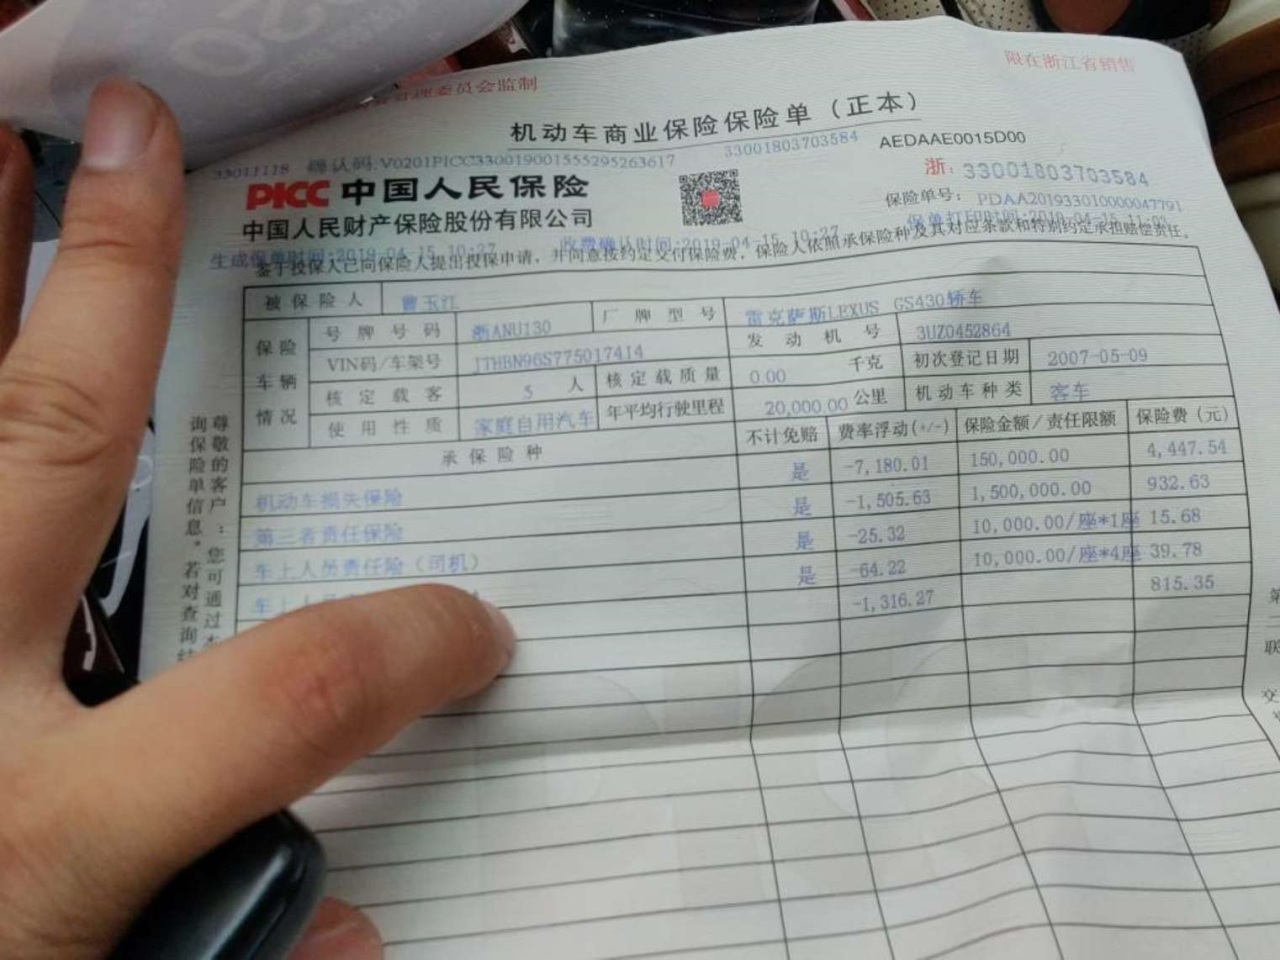 管理委员会监制
限在浙江省销售
机动车商业保险保险单（正本）
33011118 确认码:V0201PICC330019001555295263617
33001803703584
AEDAAE0015D00
PICC 中国人民保险
浙: 33001803703584
中国人民财产保险股份有限公司
保险单号: PDAA201933010000047791
生成保单时间:2019-04-15 10:27
收费确认时间:2019-04-15 10:27
保单打印时间:2019-04-15 11:02
鉴于投保人已向保险人提出投保申请，并同意按约定交付保险费，保险人依照承保险种及其对应条款和特别约定承担赔偿责任。
被保险人 曹玉江
保险车辆情况
号牌号码 浙ANU130 厂牌型号 雷克萨斯LEXUS GS430轿车
VIN码/车架号 JTHBN96S775017414 发动机号 3UZ0452864
核定载客 5 人 核定载质量 0.00 千克 初次登记日期 2007-05-09
使用性质 家庭自用汽车 年平均行驶里程 20,000.00 公里 机动车种类 客车
承保险种 不计免赔 费率浮动(+/-) 保险金额/责任限额 保险费（元）
机动车损失保险 是 -7,180.01 150,000.00 4,447.54
第三者责任保险 是 -1,505.63 1,500,000.00 932.63
车上人员责任险（司机） 是 -25.32 10,000.00/座*1座 15.68
车上人 是 -64.22 10,000.00/座*4座 39.78
-1,316.27 815.35
尊敬的客户：您可通过本
询保险单信息。若对查询结
第
联
交